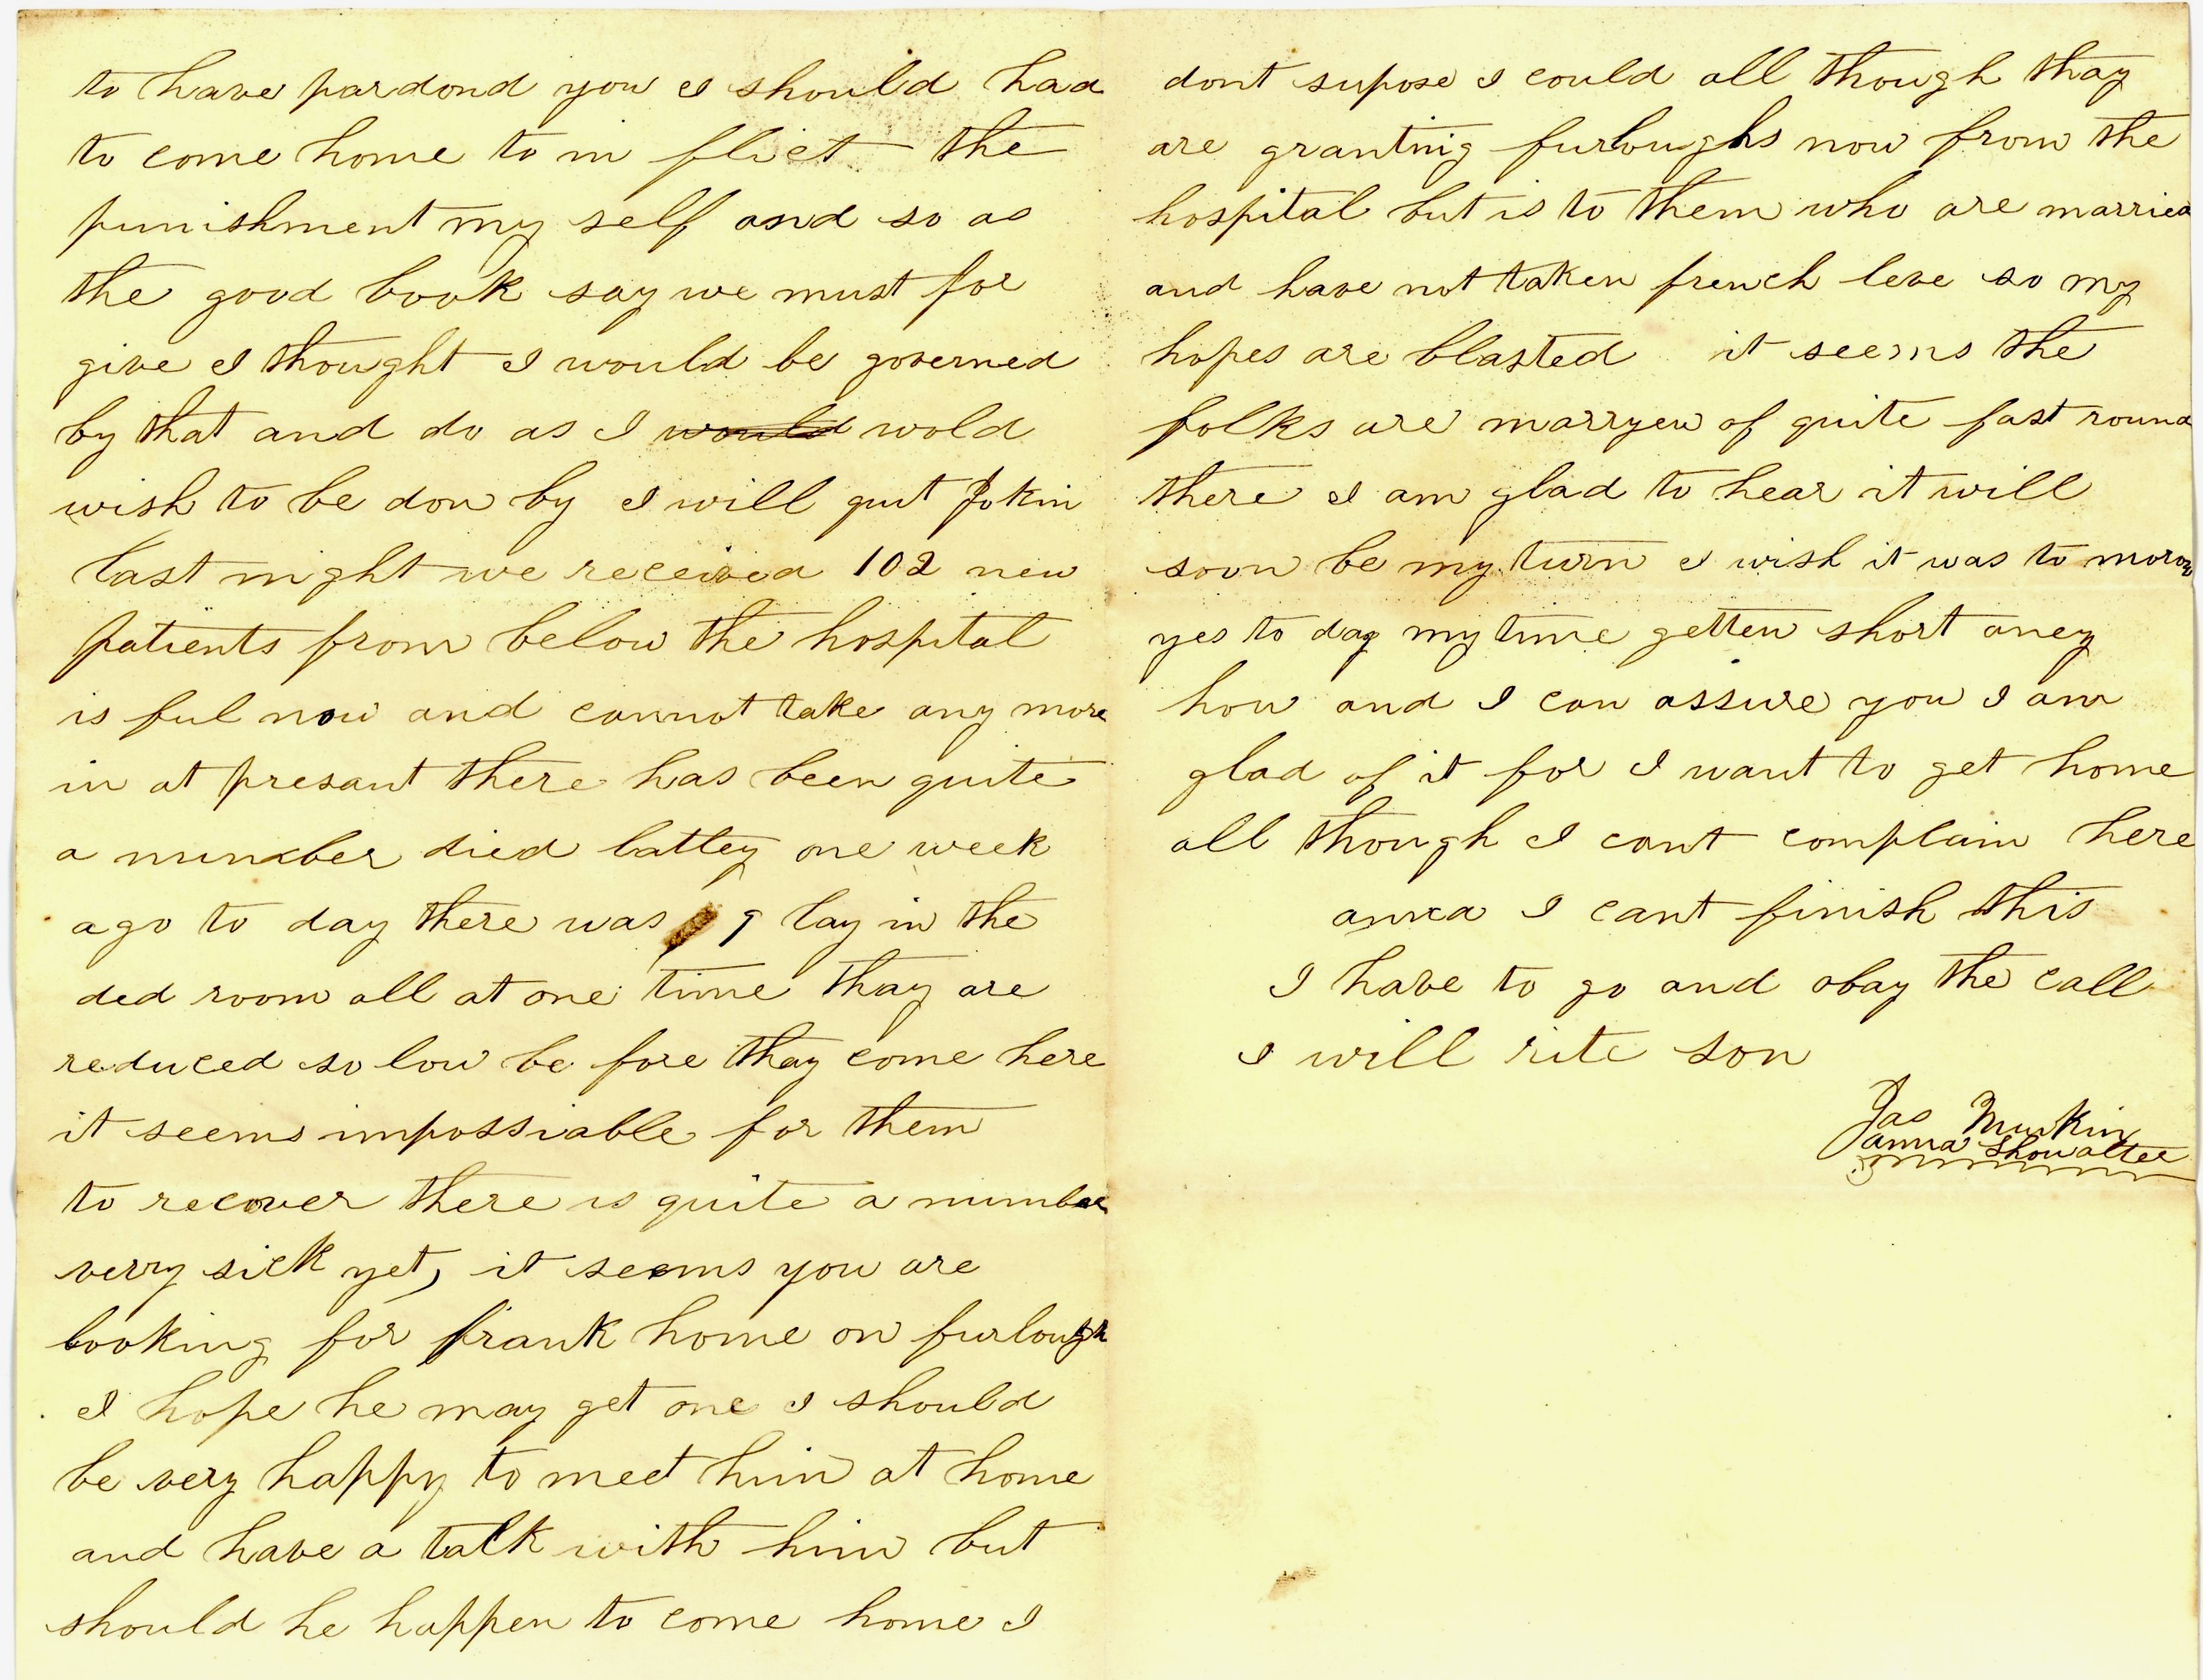 to have pardond you I should had
to come home to in flict the
punishment my self and so as
the good book say we must for
give I thought I would be governed
by that and do as I would wold
wish to be don by I will quit Jokin
last night we received 102 new
patients from below the hospital
is ful now and cannot take any more
in at presant there has been quite
a number died lattey one week
ago to day there was 9 lay in the
ded room all at one time thay are
reduced so low be fore thay come here
it seems impossiable for them
to recover there is quite a number
verry sick yet, it seems you are
looking for frank home on furlough
I hope he may get one I should
be very happy to meet him at home
and have a talk with him but
should he happen to come home I
dont supose I could all though thay
are granting furloughs now from the
hospital but is to them who are married
and have not taken french leve so my
hopes are blasted it seems the
folks are marryen of quite fast round
there I am glad to hear it will
soon be my turn I wish it was to morow
yes to day my time getten short aney
how and I can assure you I am
glad of it for I want to get home
all though I cant complain here
anna I cant finish this
I have to go and obay the call
I will rite son
Jas Murkin
anna Showalter